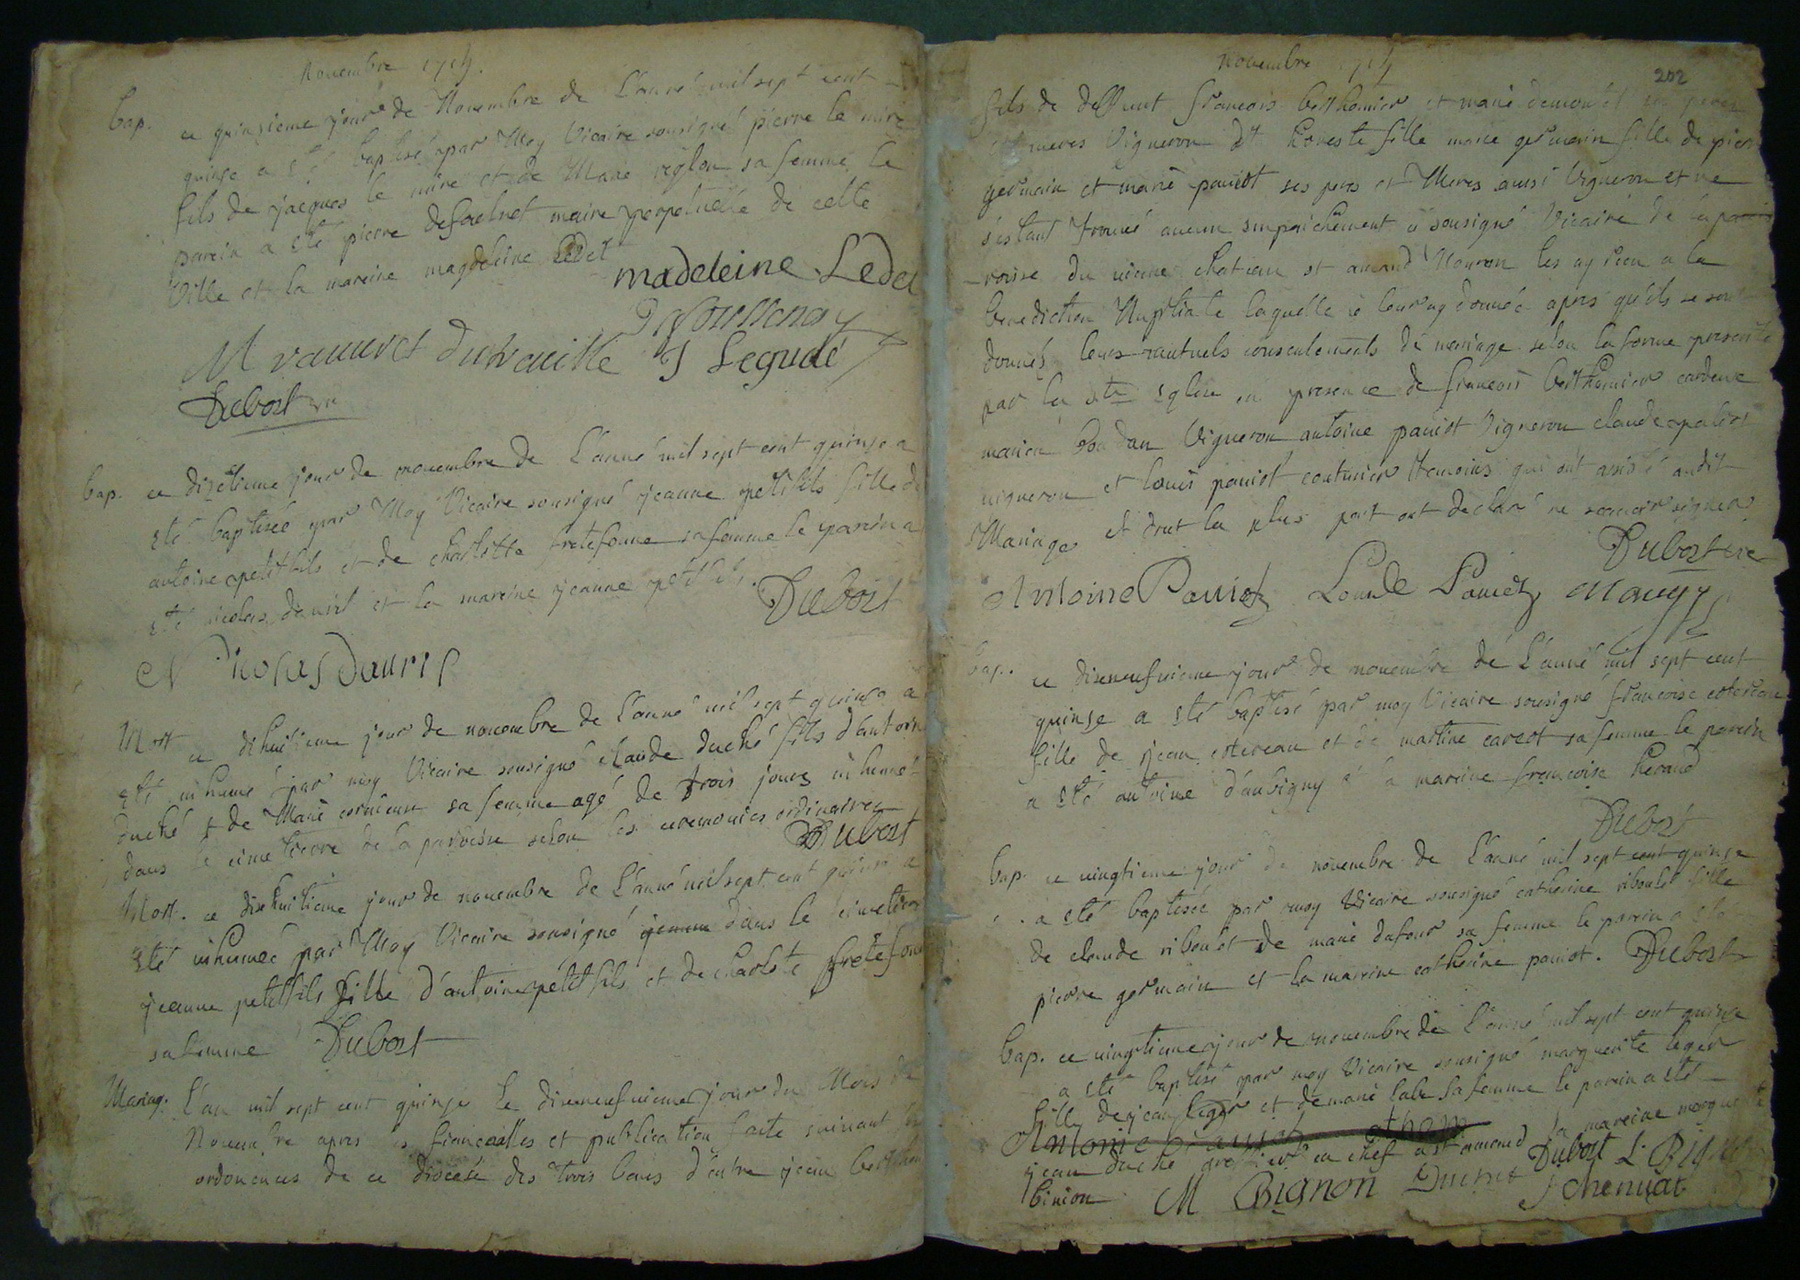 Novembre 1715
bap. ce quinzieme jour de Novembre de L'anné mil sept cent
quinze a été baptisé par Moy Vicaire sousigné pierre le mire
fils de jacques le mire et de Marie reglon sa femme le
parein a été pierre maire perpetuelle de cette
Ville et la mareine magdeleine Ledet
madeleine Ledet
M J Legude
Dubost vre
bap. ce dixetieme jour de novembre de L'anné mil sept cent quinze a
été baptisée par Moy Vicaire sousigné jeanne petitfils fille de
antoine petitfils et de charlotte fretefonne sa femme le parein a
été nicolas dauril et la mareine jeanne petitfils.
Dubost
Nicolas Dauril
Mort ce dihuitieme jour de novembre de L'anné mil sept quinze a
été inhumé par moy Vicaire sousigné claude duché fils d'antoine
duché et de Marie sa femme agé de trois jours inhumé
dans le cimetiere de la paroisse selon les ceremonies ordinaires
Dubost
Mort. ce dixhuitieme jour de novembre de L'anné mil sept cent quinze a
été inhumeé par Moy Vicaire sousigné jeanne dans le cimetiere
jeanne petitfils fille d'antoine petitfils et de charlote fretefonne
sa femme Dubost
Mariag. L'an mil sept cent quinze le dixneufvieme jour du Mois de
Novembre apres les fiancailles et publication faite suivant les
ordonences de ce diocese des trois bans d'entre jean berthomier
novembre 1715
202
fils de deffunt francois berthomier et marie demoulet ses peres
et meres Vigneron Et honeste fille marie germain fille de pierre
germain et marie pauiot ses peres et Meres aussi Vigneron et ne
s'estant trouvé aucun empaichement je sousigné Vicaire de la pa
-roisse du vieux chateau st amand Mouron les ay receu a la
benediction Nuptiale laquelle je leur ay donnée apres qu'ils se sont
donnés leurs mutuels consentements de mariage selon la forme prescrite
par la ste Eglise en presence de francois berthomier cardeur
marien Boudan Vigneron antoine pauiot Vigneron claude pauiot
vigneron et louis pauiot couturier temoins qui ont assisté audit
Mariage et dont la plus part ont declaré ne scavoir signer
Dubost vre
Antoine Pauiot Pauiot Maugy
bap. ce dixneufvieme jour de novembre de L'anné mil sept cent
quinze a été baptisé par moy Vicaire sousigné francoise estereau
fille de jean estereau et de martine carcot sa femme le parein
a été antoine d'aubigny et la mareine francoise heraud
Dubost
bap. ce vingtieme jour de novembre de L'anné mil sept cent quinze
a été baptisée par moy Vicaire sousigné catherine riboulet fille
de claude riboulet de marie dufour sa femme le parein a été
pierre germain et la mareine catherine pauiot. Dubost
bap. ce vingtieme jour de novembre de L'anné mil sept cent quinze
a été baptisé par moy Vicaire sousigné marguerite leger
fille de jean leger et de marie labe sa femme le parein a été
Antoine
jean duché greffier en chef a st amand la mareine marguerite
binion M Bignon Duché Dubost L. Bignon
J Chenuat